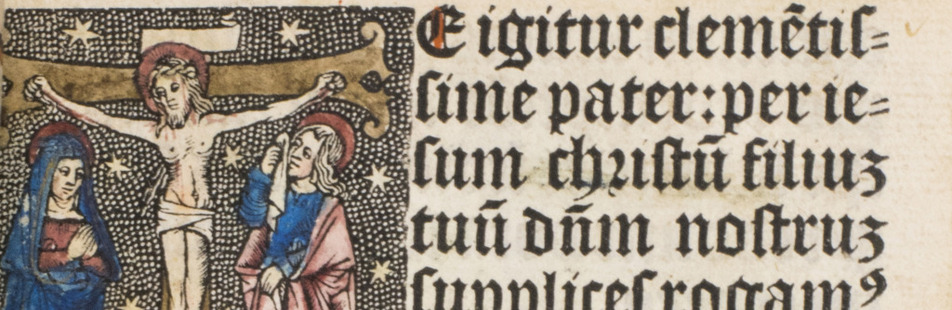 E igitur clemētiſ=
ſime pater: per ie=
ſum chriſtū filiuꝫ
tuū dn̄m noſtruꝫ
ſupplices rogamꝰ